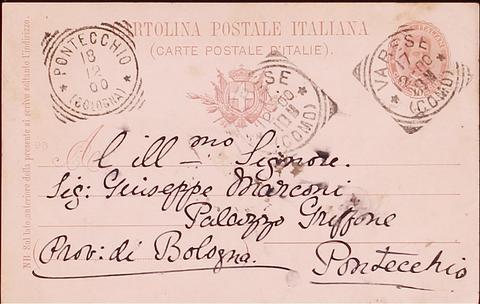 CARTOLINA POSTALE ITALIANA
(CARTE POSTALE D'ITALIE)
PONTECCHIO
18
12
00
(BOLOGNA)
VARESE
17
00
(COMO)
All' Ill.mo Signore
Sig: Giuseppe Marconi
Palazzo Griffone
Prov: di Bologna.
Pontecchio
NB. Sul lato anteriore della presente si scrive soltanto l'indirizzo.